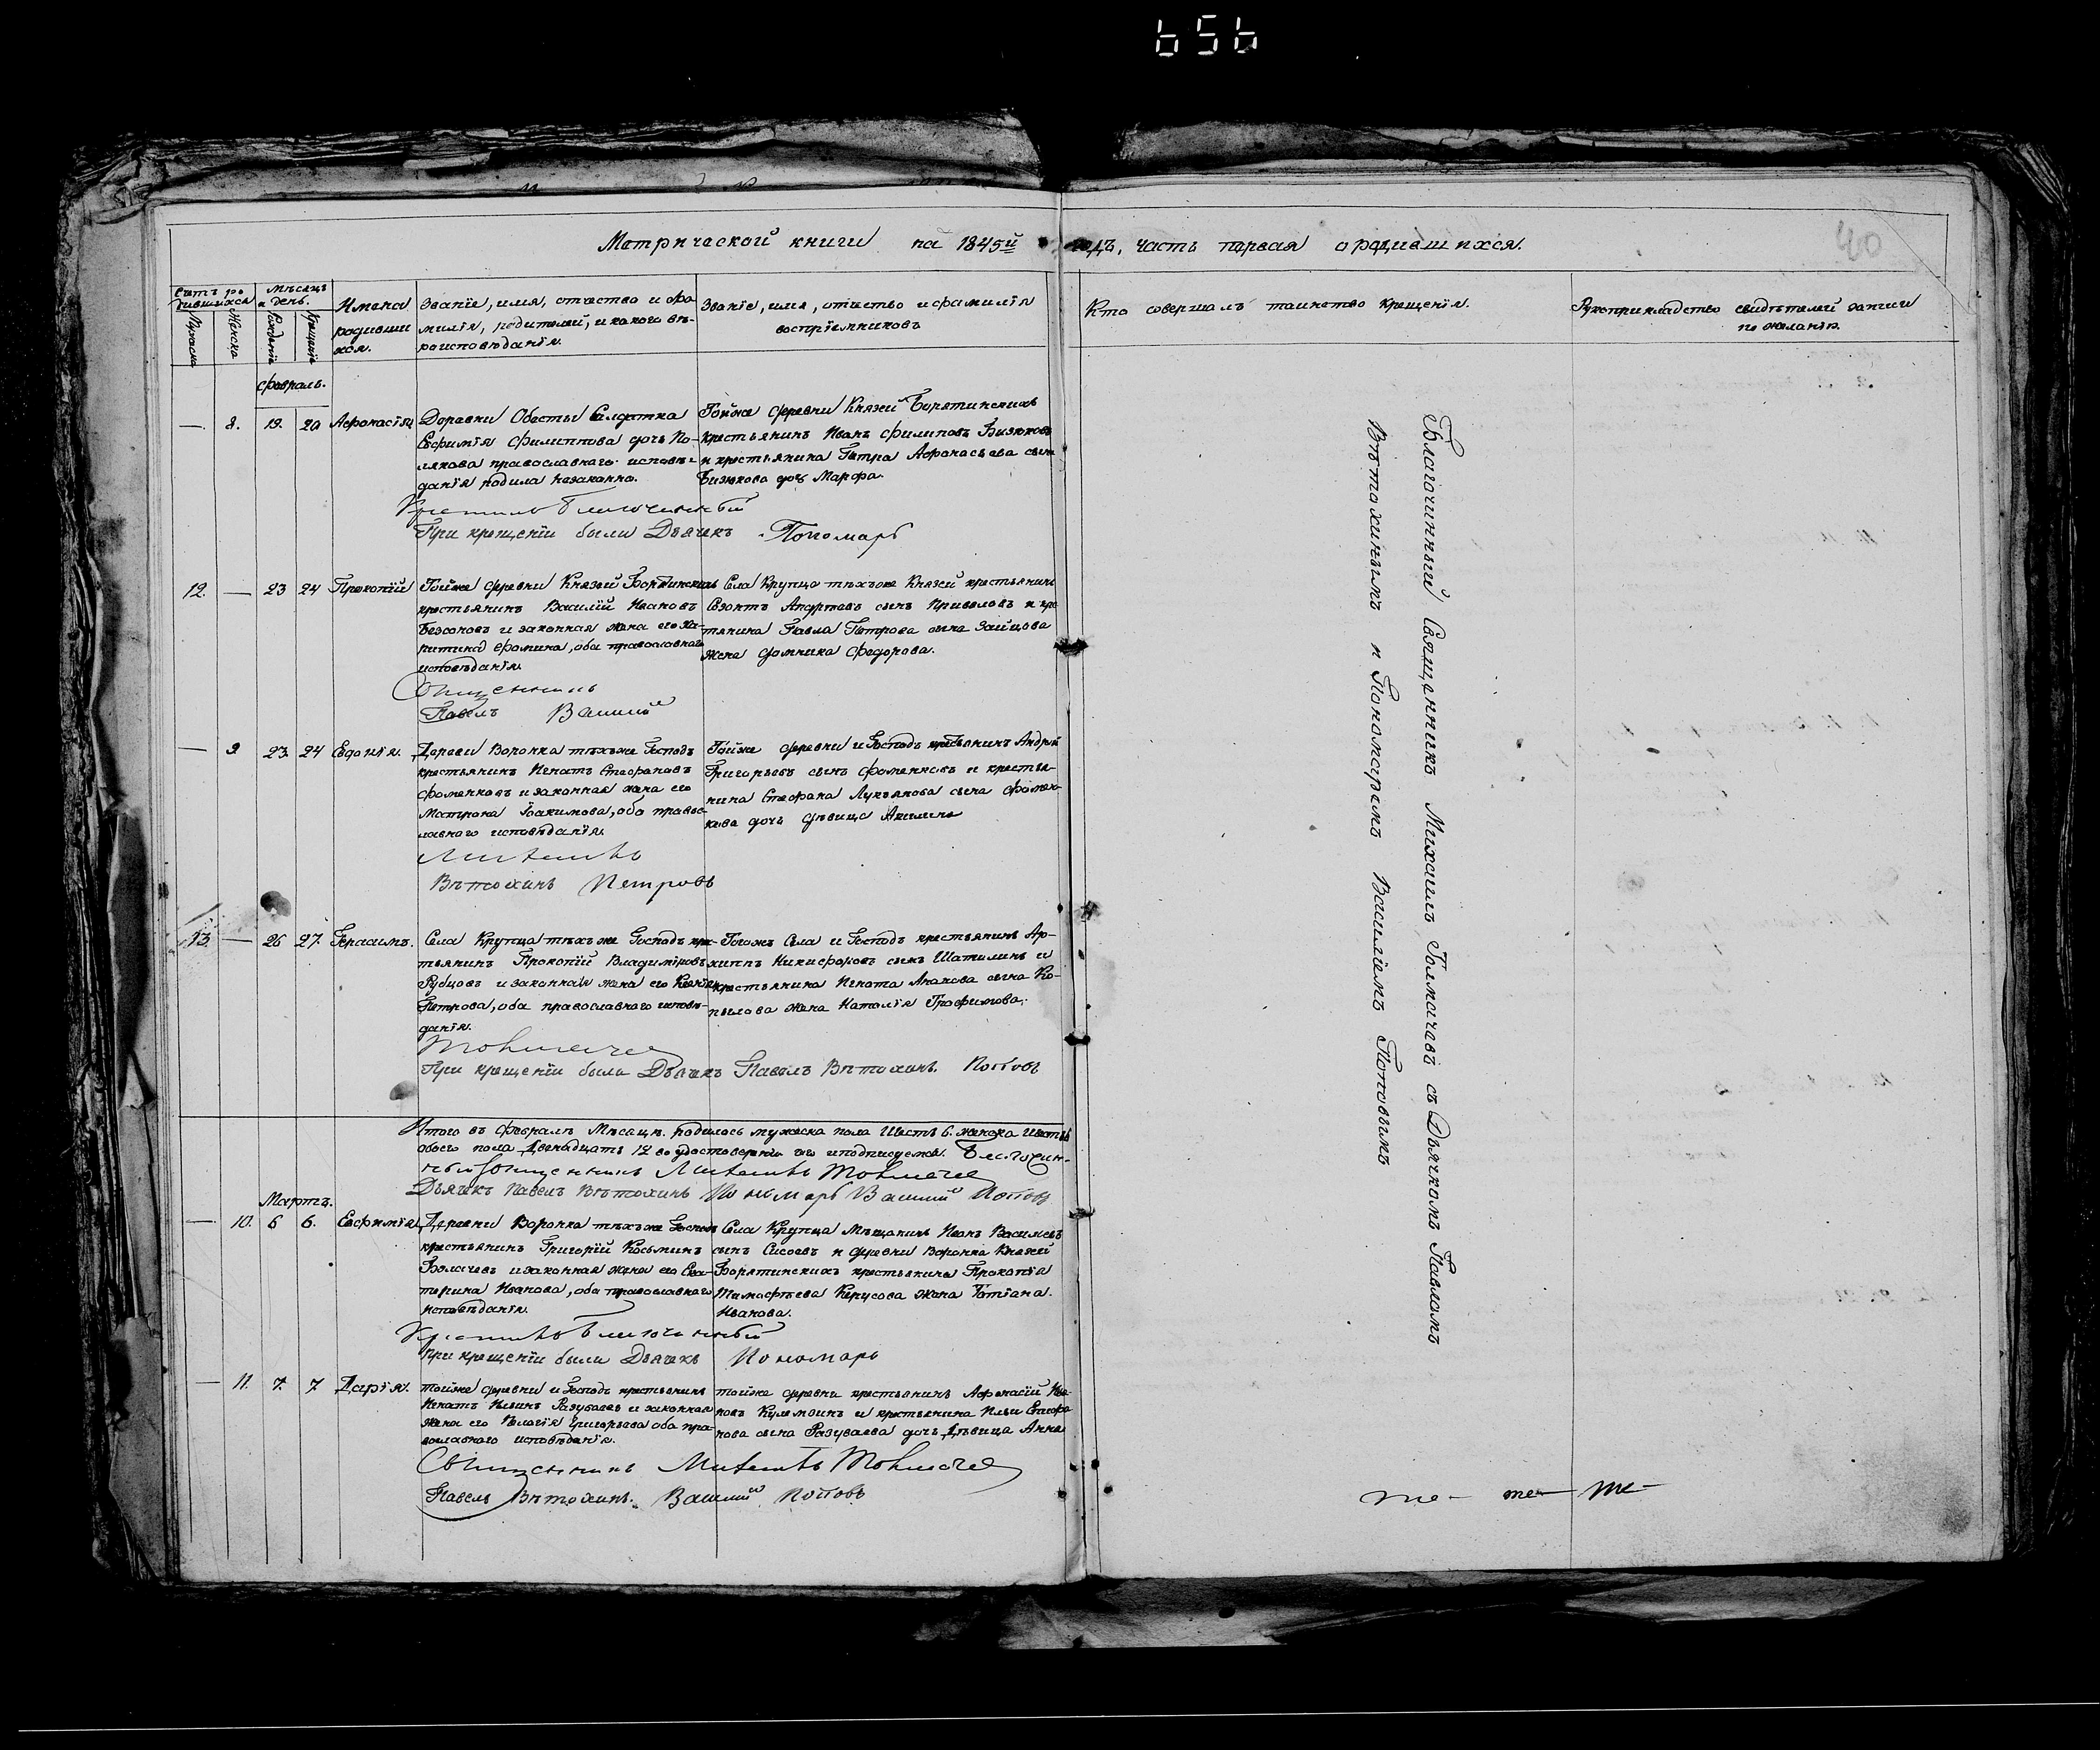 656
Метрической книги на 1845й годъ, часть первая о родившихся.
40
Счетъ родившихся
Мѣсяцъ и день.
Имена родивши хся.
Званіе, имя, отчество и фамилія, родителей, и какого вѣроисповѣданія.
Званіе, имя, отчество и фамилія воспріемниковъ
Кто совершалъ таинство крещенія.
Рукоприкладство свидѣтелей записи по желанію.
Мужеска
Женска
Рожденія
Крещенія
Февраль.
— 8. 19. 20 Афонасія
Деревни Обесты Салдатка
Евфимія Филиппова дочь По-
лякова православнаго исповѣ-
данія родила незаконно.
Тойже деревни Князей Борятинскихъ
крестьянинъ Иванъ Филиповъ Бизюковъ
и крестьянина Петра Афонасьева сына
Бизюкова дочь Марфа.
Крестилъ благочинный
При крещеніи были Дьячекъ Пономарь
12. — 23 24 Прокопій
Тойже деревни Князей Борятинскихъ
крестьянинъ Василій Ивановъ
Безсоновъ и законная жена его Ха-
ритина Фомина, оба православнаго
исповѣданія.
Села Крупца тѣхъже Князей крестьянинъ
сынъ Приваловъ и кре
тянина Павла Петрова сына Зайцова
жена Домника Федорова.
Священникъ
Павелъ Василій
— 9 23. 24 Евдокія.
Деревни Воронка тѣхъже Господъ
крестьянинъ Игнатъ Стефановъ
Фоменковъ и законная жена его
Матрона Іоакимова, оба правос-
лавнаго исповѣданія.
Тойже деревни и Господъ крестьянинъ Андрей
Григорьевъ сынъ Фоменковъ и крестья-
нина Стефана Лукьянова сына Фомен-
кова дочь дѣвица Акилина
Михаилъ
Вѣтохинъ Петровъ
13. — 26 27. Герасимъ.
Села Крупца тѣхъже Господъ крес-
тьянинъ Прокопій Владиміровъ
Рубцовъ и законная жена его Ксенія
Петрова, оба православнаго исповѣ-
данія.
Тогожъ Села и Господъ крестьянинъ Ар-
хиппъ Никифоровъ сынъ Шатилинъ и
крестьянина Игната сына Ко-
пылова жена Наталія Трофимова.
Толмачевъ
При крещеніи были Дьячекъ Павелъ Вѣтохинъ. Поповъ
Итого въ Февралѣ Мѣсяцѣ. родилось мужеска пола Шесть 6. женска Шесть
обоего пола Двенадцать 12 во удостовереніе чего и подписуемся. Благочин-
ный Священникъ Михаилъ Толмачевъ
Дьячекъ Павелъ Вѣтохинъ Пономарь Василій Поповъ
Мартъ.
— 10. 6 6. Евфимія
Деревни Воронка тѣхъже Господъ
крестьянинъ Григорій Косьминъ
Толмачевъ и законная жена его Ека-
терина Иванова, оба православнаго
исповѣданія.
Села Крупца Мѣщанинъ Иванъ Васильевъ
сынъ Сисоевъ и деревни Воронка Князей
Борятинскихъ крестьянина Прокопія
Тимофѣева Керусова жена Татіана.
Иванова.
Крестилъ благочинный
При крещеніи были Дьячекъ Пономарь
— 11. 7. 7 Дарія.
тойже деревни и Господъ крестьянинъ
Игнатъ Ильинъ Разуваевъ и законная
жена его Пелагія Григорьева оба пра-
вославнаго исповѣданія.
тойже деревни крестьянинъ Афонасій Ива-
новъ и крестьянина Ильи Стефа
нова сына Разуваева дочь Дѣвица Анна
Священникъ Михаилъ Толмачевъ
Павелъ Вѣтохинъ. Василій Поповъ
Благочинный Священникъ Михаилъ Толмачевъ съ Дьячкомъ Павломъ
Вѣтохинымъ и Пономаремъ Василіемъ Поповымъ
те— те— те—